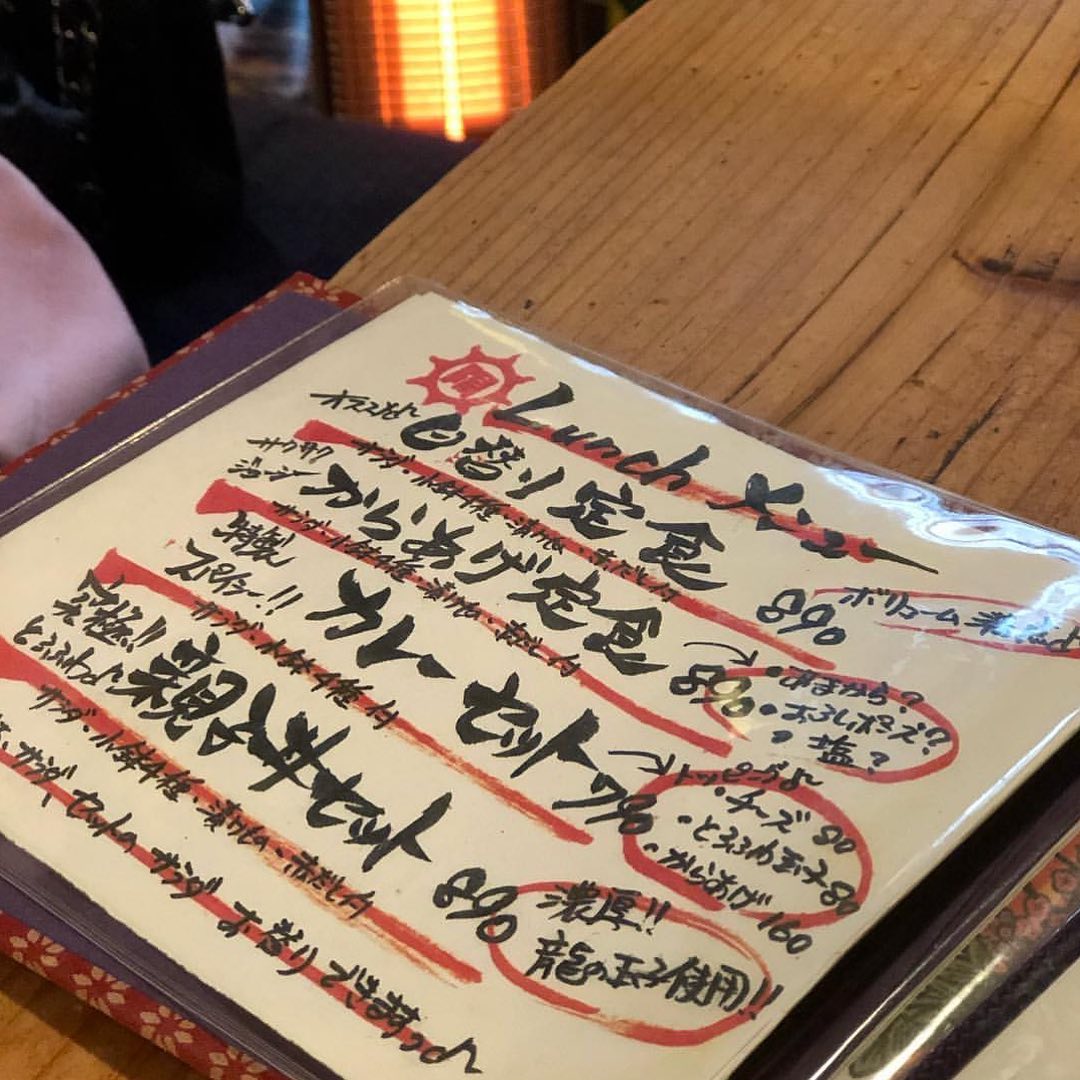 Lunch メニュー
オススメ 日替り定食 890
ボリューム満点
サラダ・小鉢4種・漬け物・赤だし付
サクサク
ジューシー からあげ定食 890
・おろしポン酢?
・塩?
サラダ・小鉢4種・漬け物・赤だし付
特製
スパイシー!! カレーセット 790
トッピング
・チーズ 80
・とろふわ玉子 80
・からあげ 160
サラダ・小鉢4種付
究極!!
とろふわっ 親子丼セット 890
濃厚!!
龍の玉子使用!!
サラダ・小鉢4種・漬け物・赤だし付
サラダ セットの サラダ お替りできます